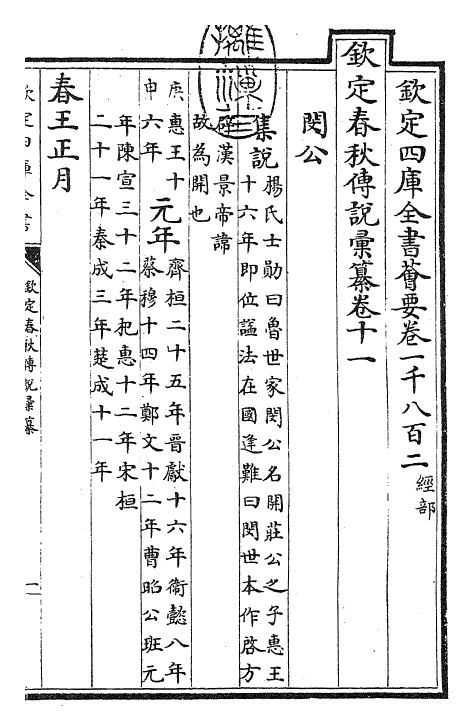 欽定四庫全書薈要卷一千八百二 經部
欽定春秋傳說彙纂卷十一
閔公
集說 楊氏士勛曰魯世家閔公名開莊公之子惠王
十六年即位諡法在國逢難曰閔世本作啓方
辟漢景帝諱
故為開也
庚申 惠王十六年 元年 齊桓二十五年晉獻十六年衛懿八年
蔡穆十四年鄭文十二年曹昭公班元
年陳宣三十二年杞惠十二年宋桓
二十一年秦成三年楚成十一年
春王正月
欽定四庫全書
欽定春秋傳說彙纂
一